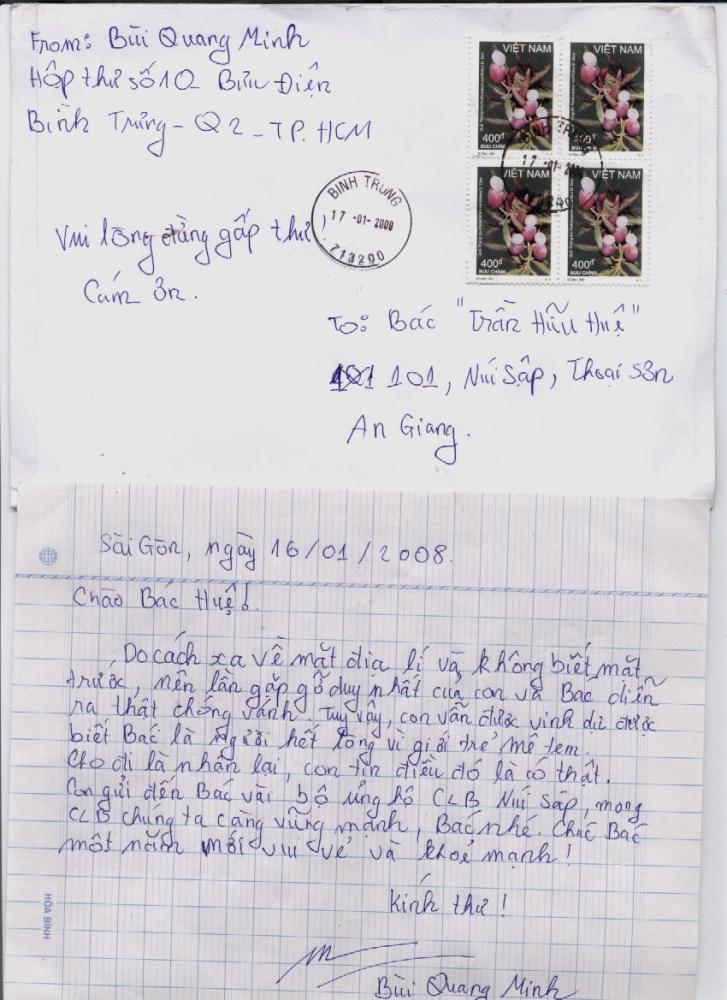 From: Bùi Quang Minh
Hộp thư số 10 Bưu Điện
Bình Trưng - Q2 - TP. HCM
VIỆT NAM
VIỆT NAM
400đ
BƯU CHÍNH
400đ
VIỆT NAM
VIỆT NAM
400đ
BƯU CHÍNH
400đ
BƯU CHÍNH
BINH TRUNG
17 -01- 2009
713290
17 -01- 200
Vui lòng đừng gấp thư!
Cám ơn.
To: Bác "Trần Hữu Huệ"
101, Núi Sập, Thoại Sơn
An Giang.
Sài Gòn, ngày 16/01/2008.
Chào Bác Huệ!
Do cách xa về mặt địa lí và không biết mặt
trước, nên lần gặp gỡ duy nhất của con và Bác diễn
ra thật chóng vánh. Tuy vậy, con vẫn được vinh dự được
biết Bác là người hết lòng vì giới trẻ mê tem.
Cho đi là nhận lại, con tin điều đó là có thật.
Con gửi đến Bác vài bộ ủng hộ CLB Núi Sập, mong
CLB chúng ta càng vững mạnh, Bác nhé. Chúc Bác
một năm mới vui vẻ và khoẻ mạnh!
Kính thư!
Bùi Quang Minh
HÒA BÌNH